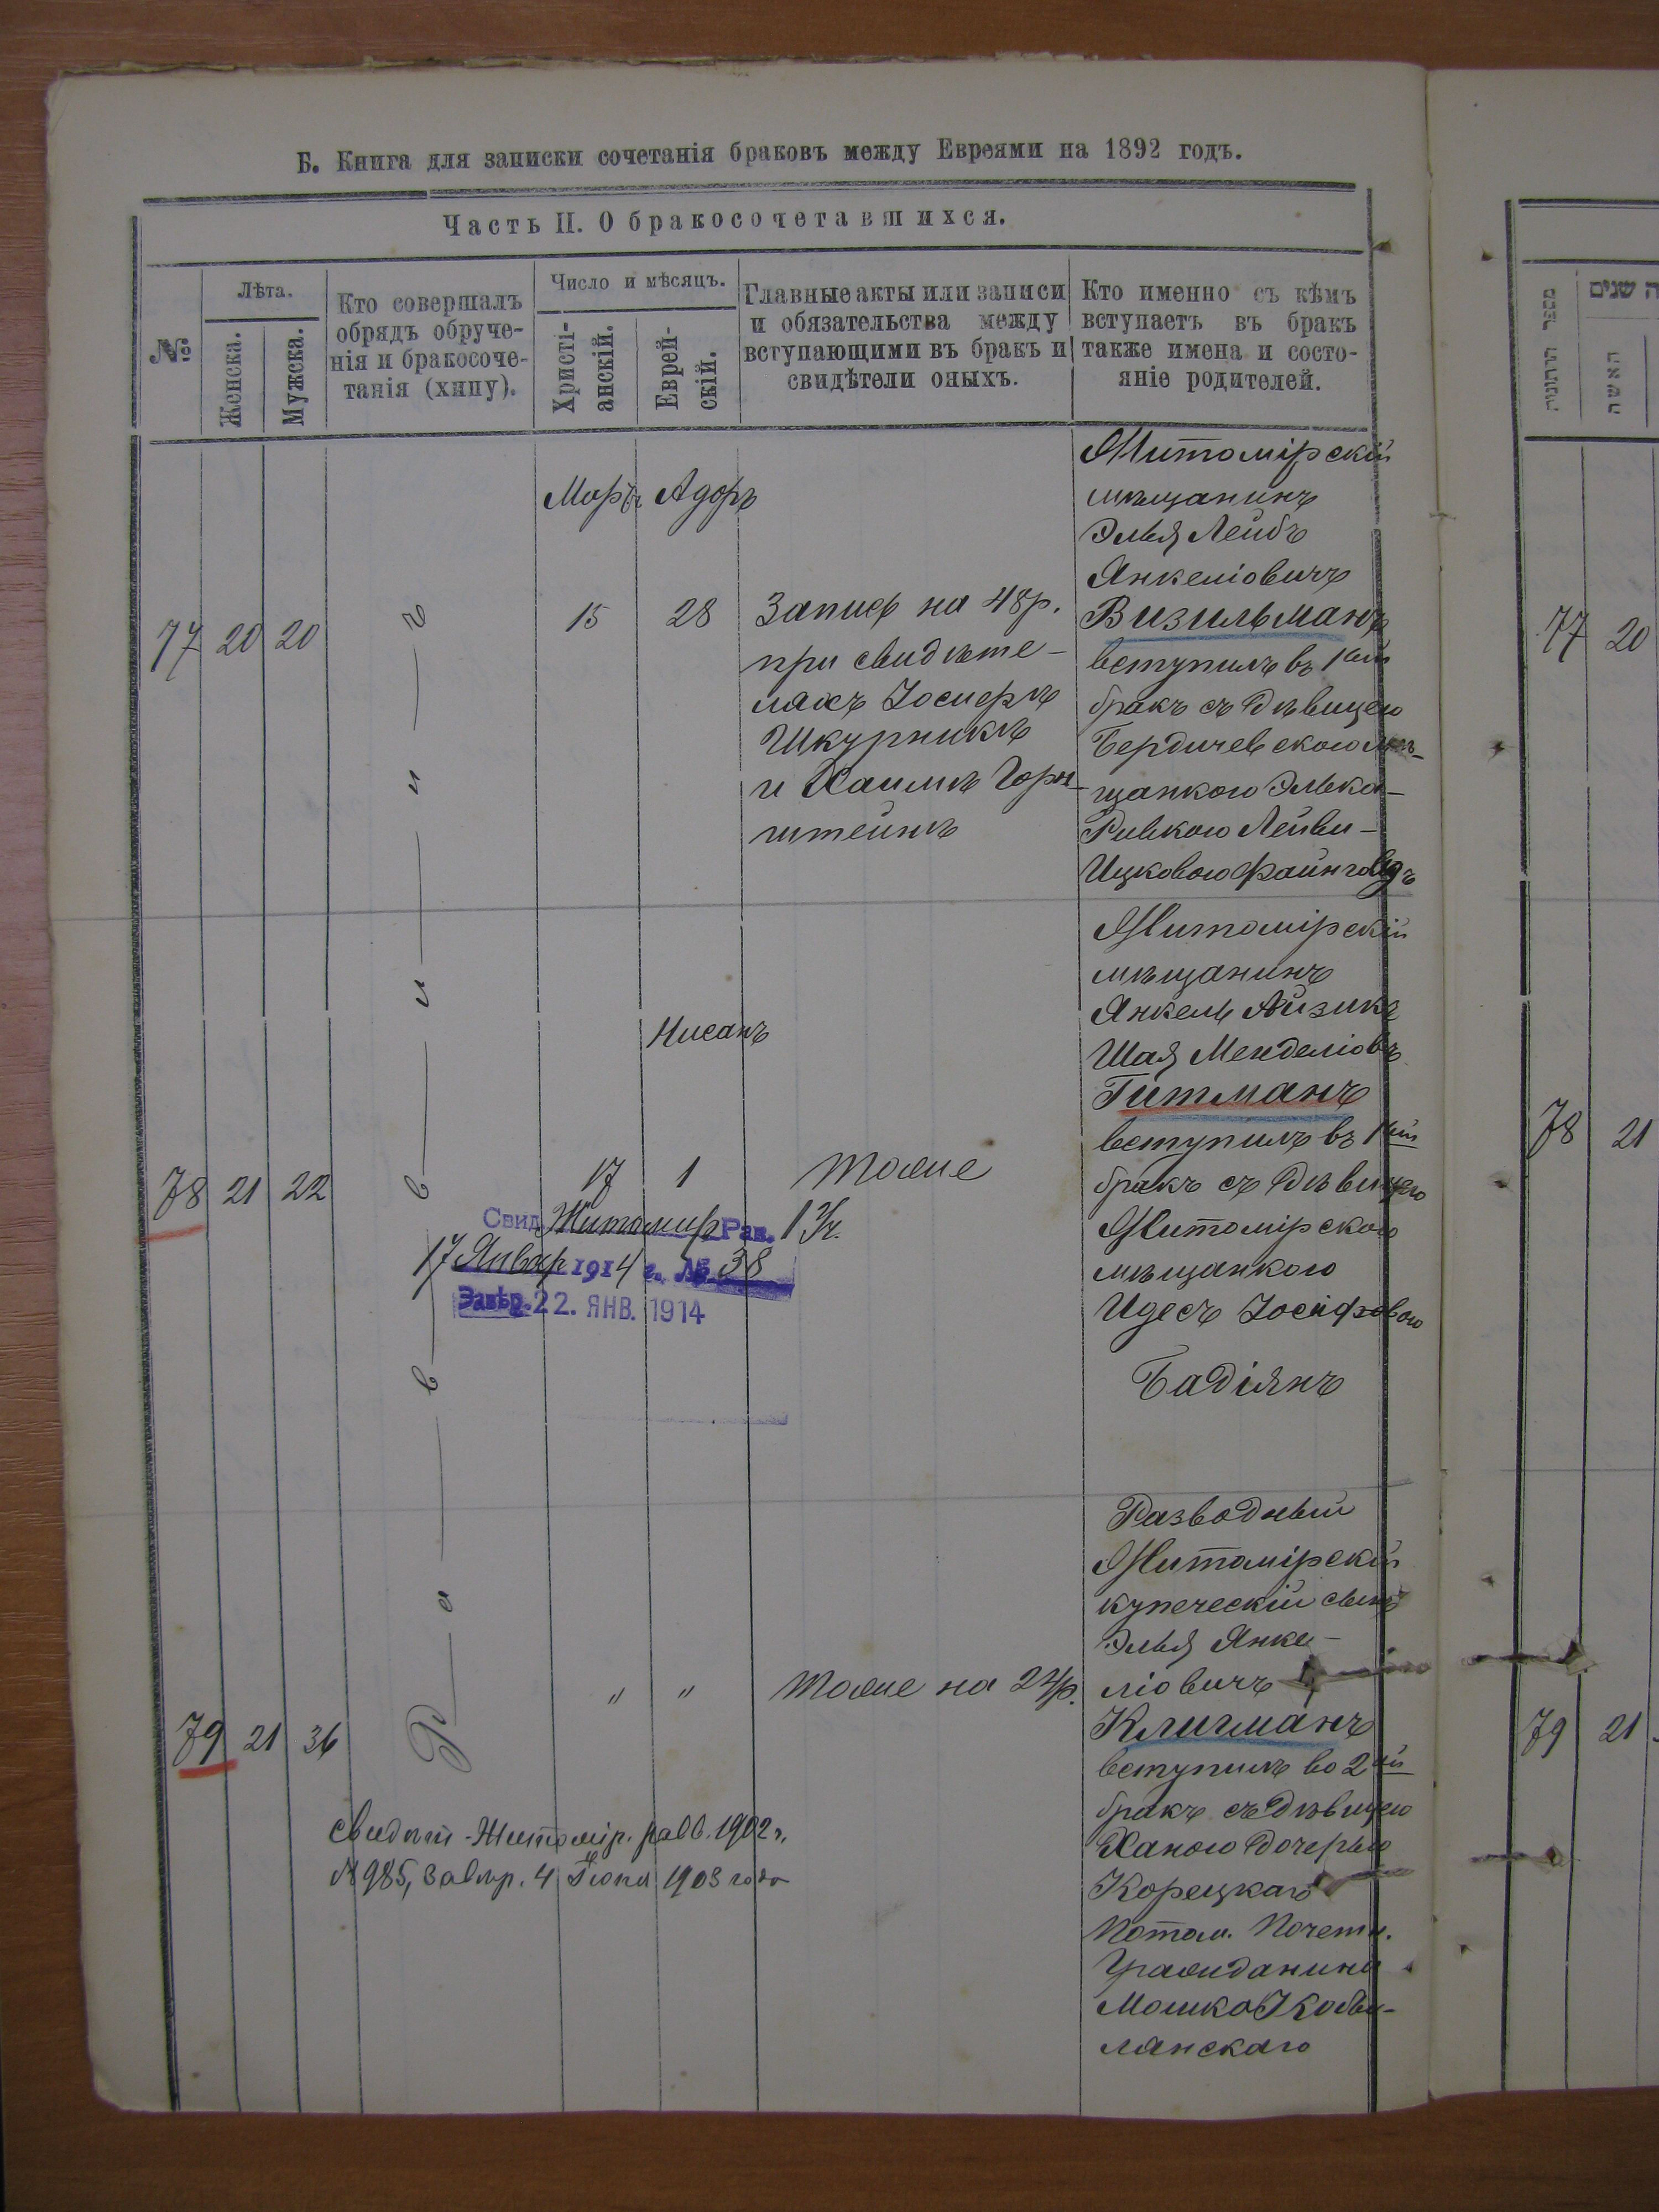 Б. Книга для записки сочетанія браковъ между Евреями на 1892 годъ.
Часть II. О бракосочетавшихся.
№
Лѣта.
Женска.
Мужска.
Кто совершалъ
обрядъ обруче-
нія и бракосоче-
танія (хипу).
Число и мѣсяцъ.
Христі-
анскій.
Еврей-
скій.
Главные акты или записи
и обязательства между
вступающими въ бракъ и
свидѣтели оныхъ.
Кто именно съ кѣмъ
вступаетъ въ бракъ
также имена и состо-
яніе родителей.
מספר החתונה
האשה
Мартъ Адоръ
77 20 20
15 28
Запись на 48 р.
при свидѣте-
ляхъ Іосифѣ
Шкурникѣ
и Хаимѣ Горн-
штейнѣ
Житомірскій
мѣщанинъ
Элья Лейбъ
Янкеліовичъ
Визильманъ
вступилъ въ 1ый
бракъ съ дѣвицею
Бердичевскою мѣ-
щанкою Элька-
Ривкою Лейви-
Ицковою Файнгольдъ
77 20
Нисанъ
78 21 22
17 1
тоже
1 Ч.
Свид. Житомир Рав.
17 Январ 1914 г. № 38
Завѣр. 22. ЯНВ. 1914
Житомірскій
мѣщанинъ
Янкель Айзикъ
Шая Менделіовъ
Гитманъ
вступилъ въ 1ый
бракъ съ дѣвицею
Житомірскою
мѣщанкою
Идесъ Іосифовою
Бадіянъ
78 21
Раввинъ
79 21 36
" "
тоже на 24 р.
Свидѣт. Житомір. равв. 1902 г.
№ 985, Завѣр. 4 Іюня 1903 года
Разводный
Житомірскій
купеческій сынъ
Элья Янке-
ліовичъ
Клигманъ
вступилъ во 2ой
бракъ съ дѣвицею
Ханою дочерью
Корецкаго
Потом. Почетн.
Гражданина
Мошка Кобы-
лянскаго
79 21